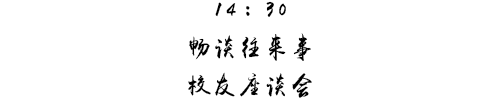 14：30
畅谈往来事
校友座谈会